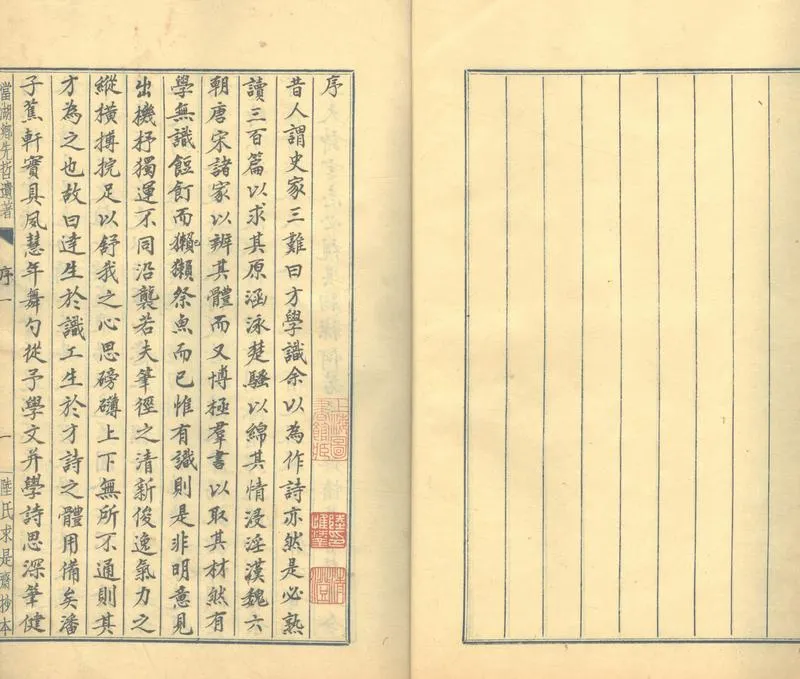 序
昔人謂史家三難曰才學識余以為作詩亦然是必熟
讀三百篇以求其原涵泳楚騷以綿其情浸淫漢魏六
朝唐宋諸家以辨其體而又博極羣書以取其材然有
學無識餖飣而獺獺祭魚而已惟有識則是非明意見
出機抒獨運不同沿襲若夫筆徑之清新俊逸氣力之
縱橫摶捖足以舒我之心思磅礴上下無所不通則其
才為之也故曰達生於識工生於才詩之體用備矣潘
子蕉軒實具夙慧年舞勺從予學文并學詩思深筆健
當湖鄉先哲遺著
序一
一
陸氏求是齋抄本
上海圖書館藏